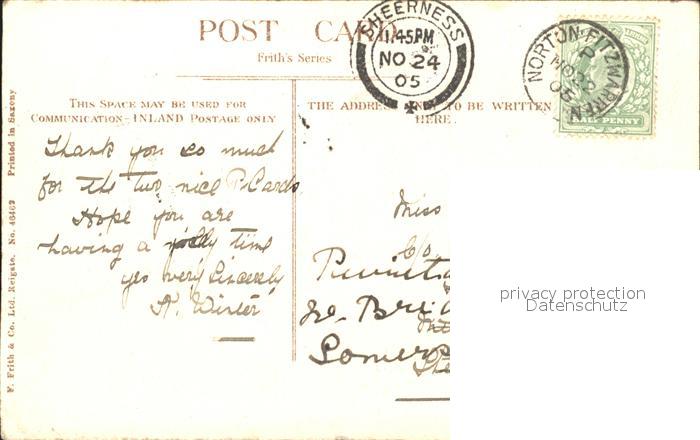 POST CARD
Frith's Series
THIS SPACE MAY BE USED FOR
COMMUNICATION—INLAND POSTAGE ONLY
THE ADDRESS ONLY TO BE WRITTEN
HERE.
SHEERNESS
11.45PM
NO 24
05
NORTON-FITZWARREN
05
HALF PENNY
Thank you so much
for the two nice P. Cards.
Hope you are
having a jolly time
yrs very Sincerely
A. Winter
Miss
C/o
Somer
F. Frith & Co. Ltd. Reigate. No. 46462 Printed in Saxony
privacy protection
Datenschutz